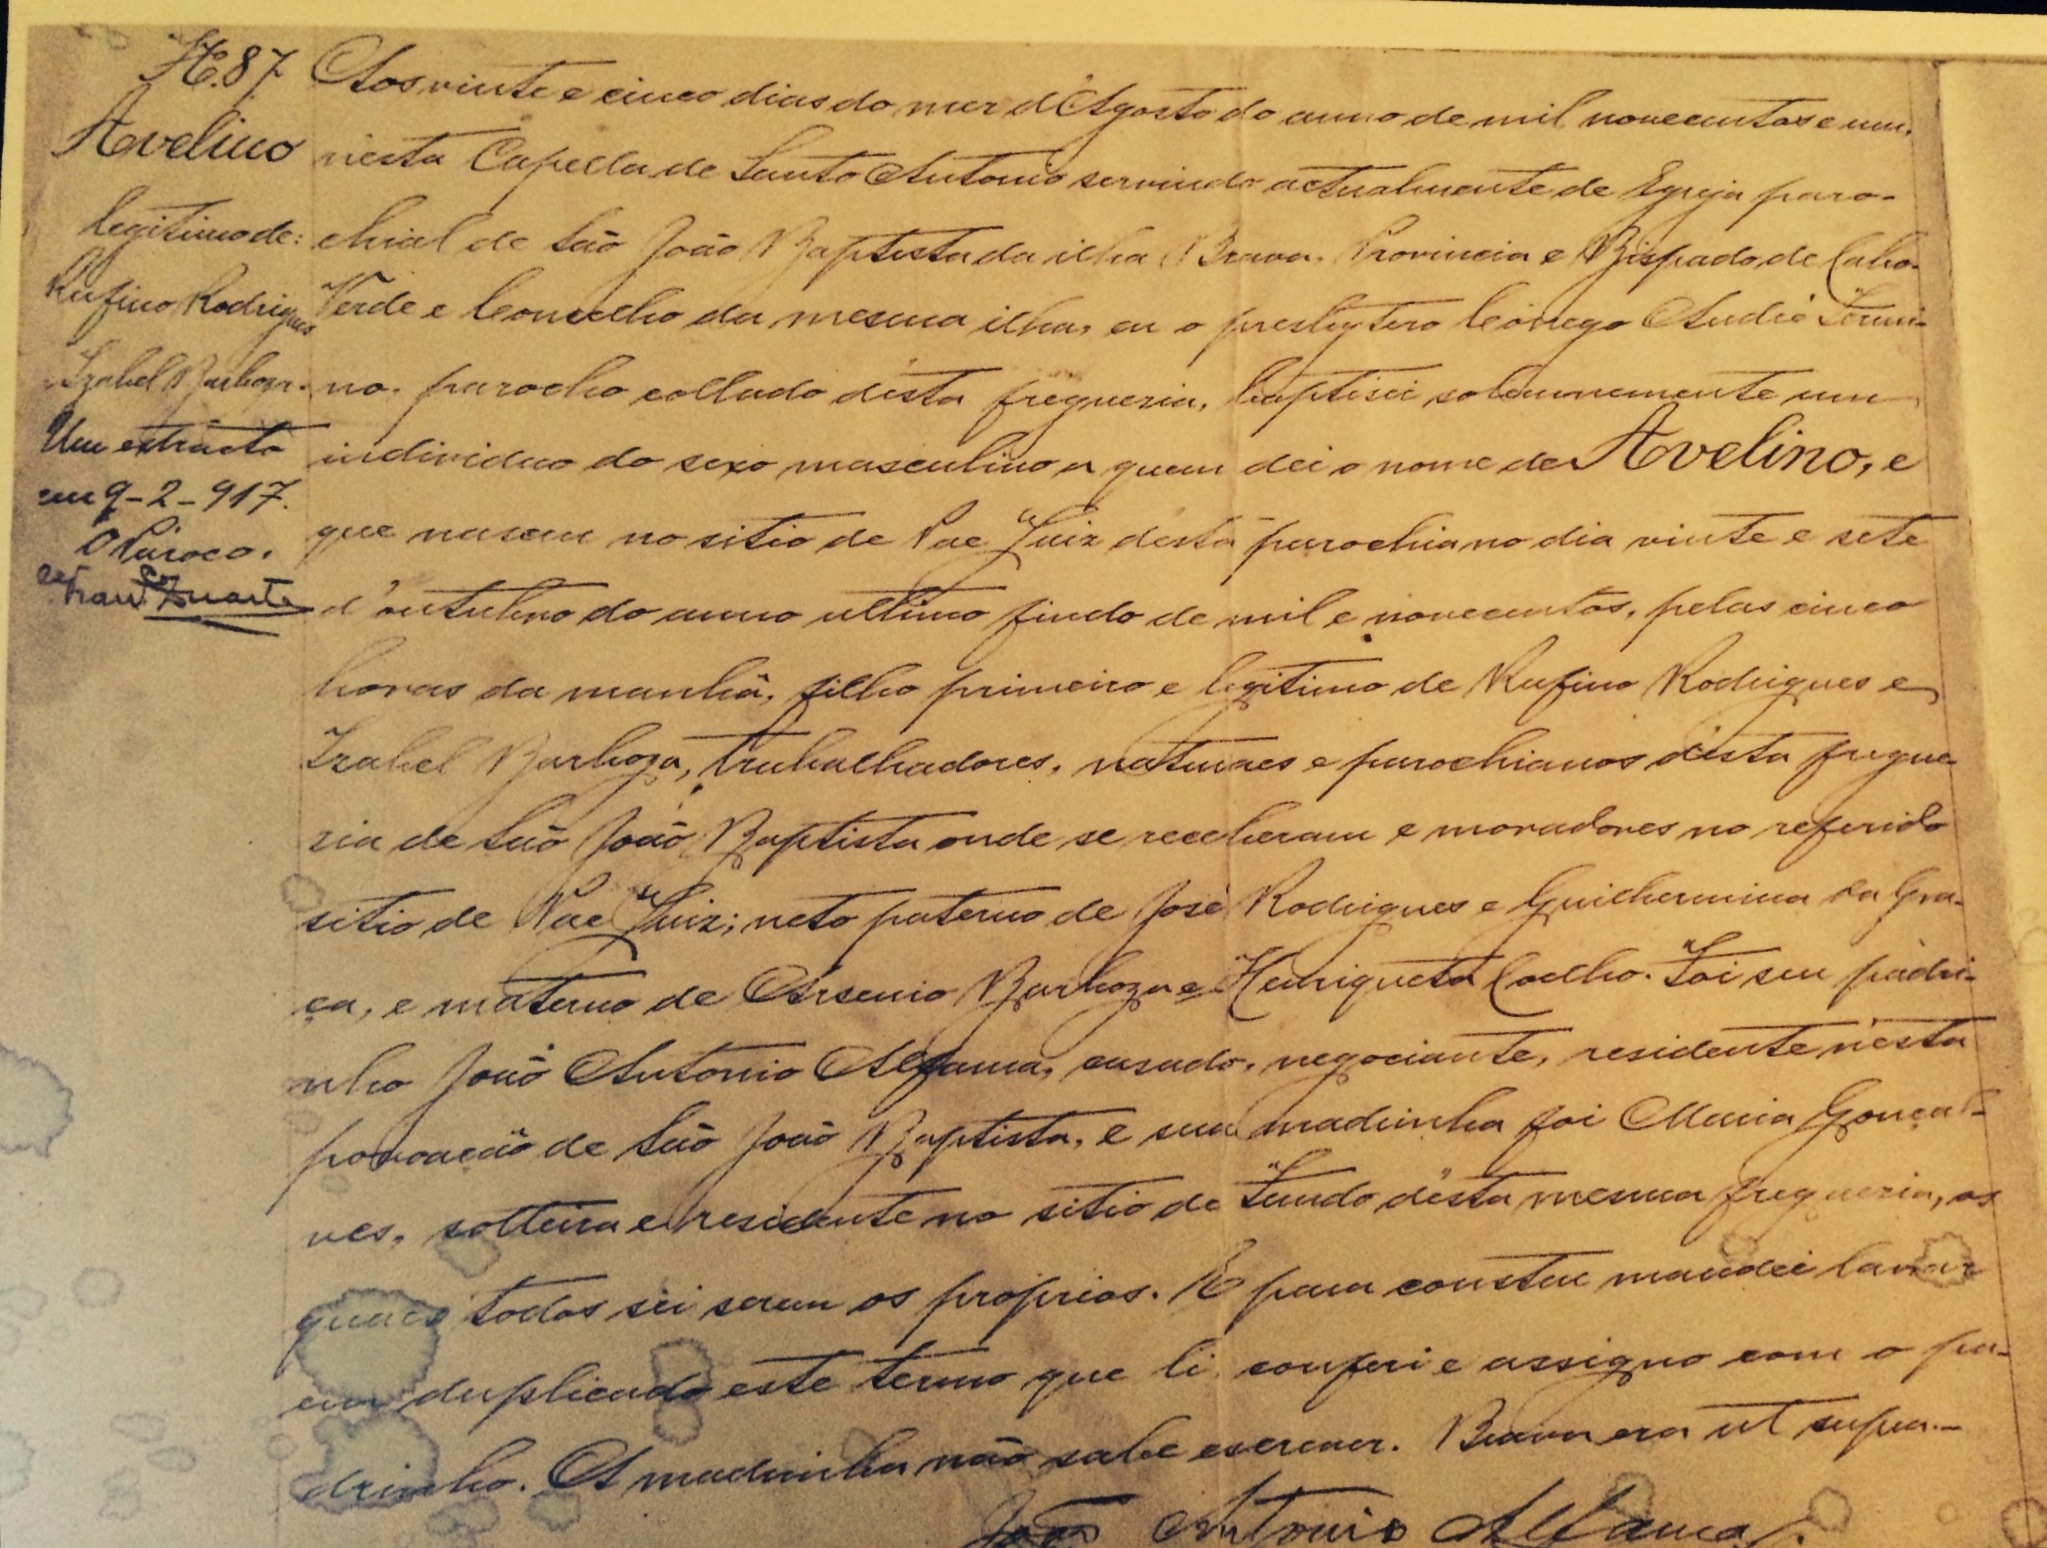 Nº 87
Avelino
legitimo de:
Rufino Rodrigues
Izabel Barboza.
Um extracto
em 9-2-917.
O Pároco.
Duarte
Aos vinte e cinco dias do mez d'Agosto do anno de mil novecentos e um,
nesta Capella de Santo Antonio servindo actualmente de Egreja paro-
chial de São João Baptista da ilha Brava, Provincia e Bispado de Cabo-
Verde e Concelho da mesma ilha, eu o presbytero Cónego André Firmi-
no, parocho collado désta freguezia, baptisei solemnemente um
individuo do sexo masculino a quem dei o nome de Avelino, e
que nasceu no sitio de Pae Luiz désta parochia no dia vinte e sete
d'outubro do anno ultimo findo de mil e novecentos, pelas cinco
horas da manhã, filho primeiro e legitimo de Rufino Rodrigues e
Izabel Barboza, trabalhadores, naturaes e parochianos désta fregue-
zia de São João Baptista onde se receberam e moradores no referido
sitio de Pae Luiz; neto paterno de José Rodrigues e Guilhermina da Gra-
ça, e materno de Arsenio Barboza e Henriqueta Coelho. Foi seu padri-
nho João Antonio Alfama, casado, negociante, residente nésta
povoação de São João Baptista, e sua madrinha foi Maria Gonçal-
ves, solteira e residente no sitio de Fundo désta mesma freguezia, os
quaes todos sei serem os proprios. E para constar mandei lavrar
em duplicado este termo que li, conferi e assigno com o pa-
drinho. A madrinha não sabe escrever. Brava era ut supra.-
João Antonio Alfama